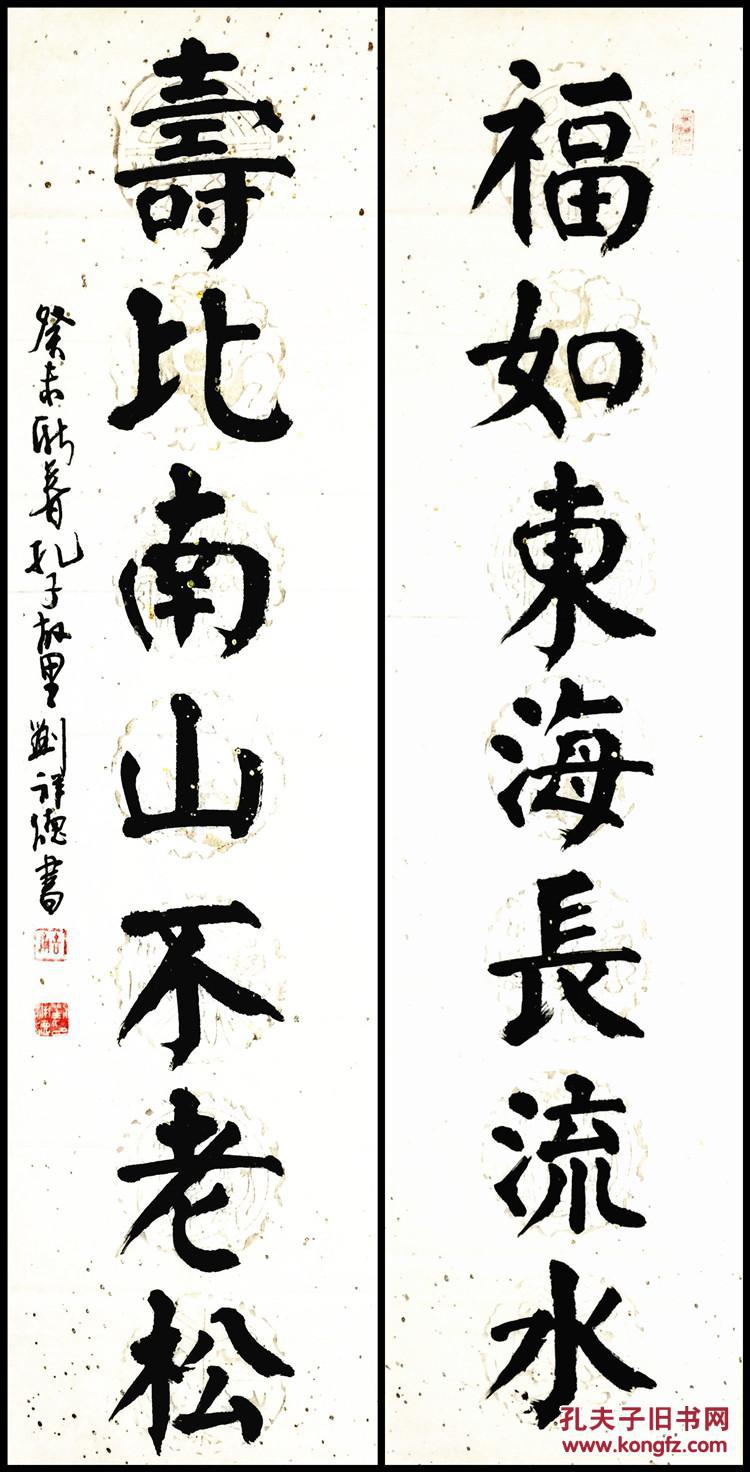 福如東海長流水
壽比南山不老松
癸未新春孔子故里劉祥德書
孔夫子旧书网
www.kongfz.com